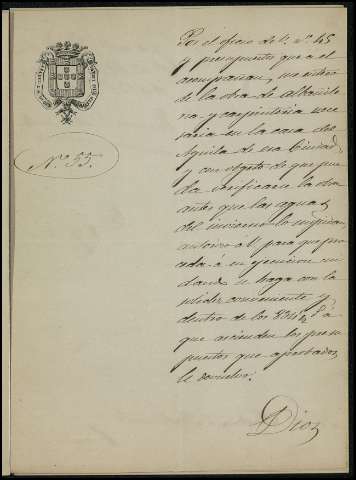 Nº 55.
Por el oficio de V. nº 45
y presupuestos que a el
acompañan, me entero
de la obra de Albañile-
ria y carpinteria nece-
saria en la casa del
Aguila de esa Ciudad,
y con objeto de que pue-
da verificarse la obra
antes que las aguas
del invierno lo impidan,
autorizo a V. para que pro-
ceda á su ejecucion cui-
dando se haga con la
solidez conveniente y
dentro de los
que ascienden los presu-
puestos que aprobados
le devuelvo.
Dios